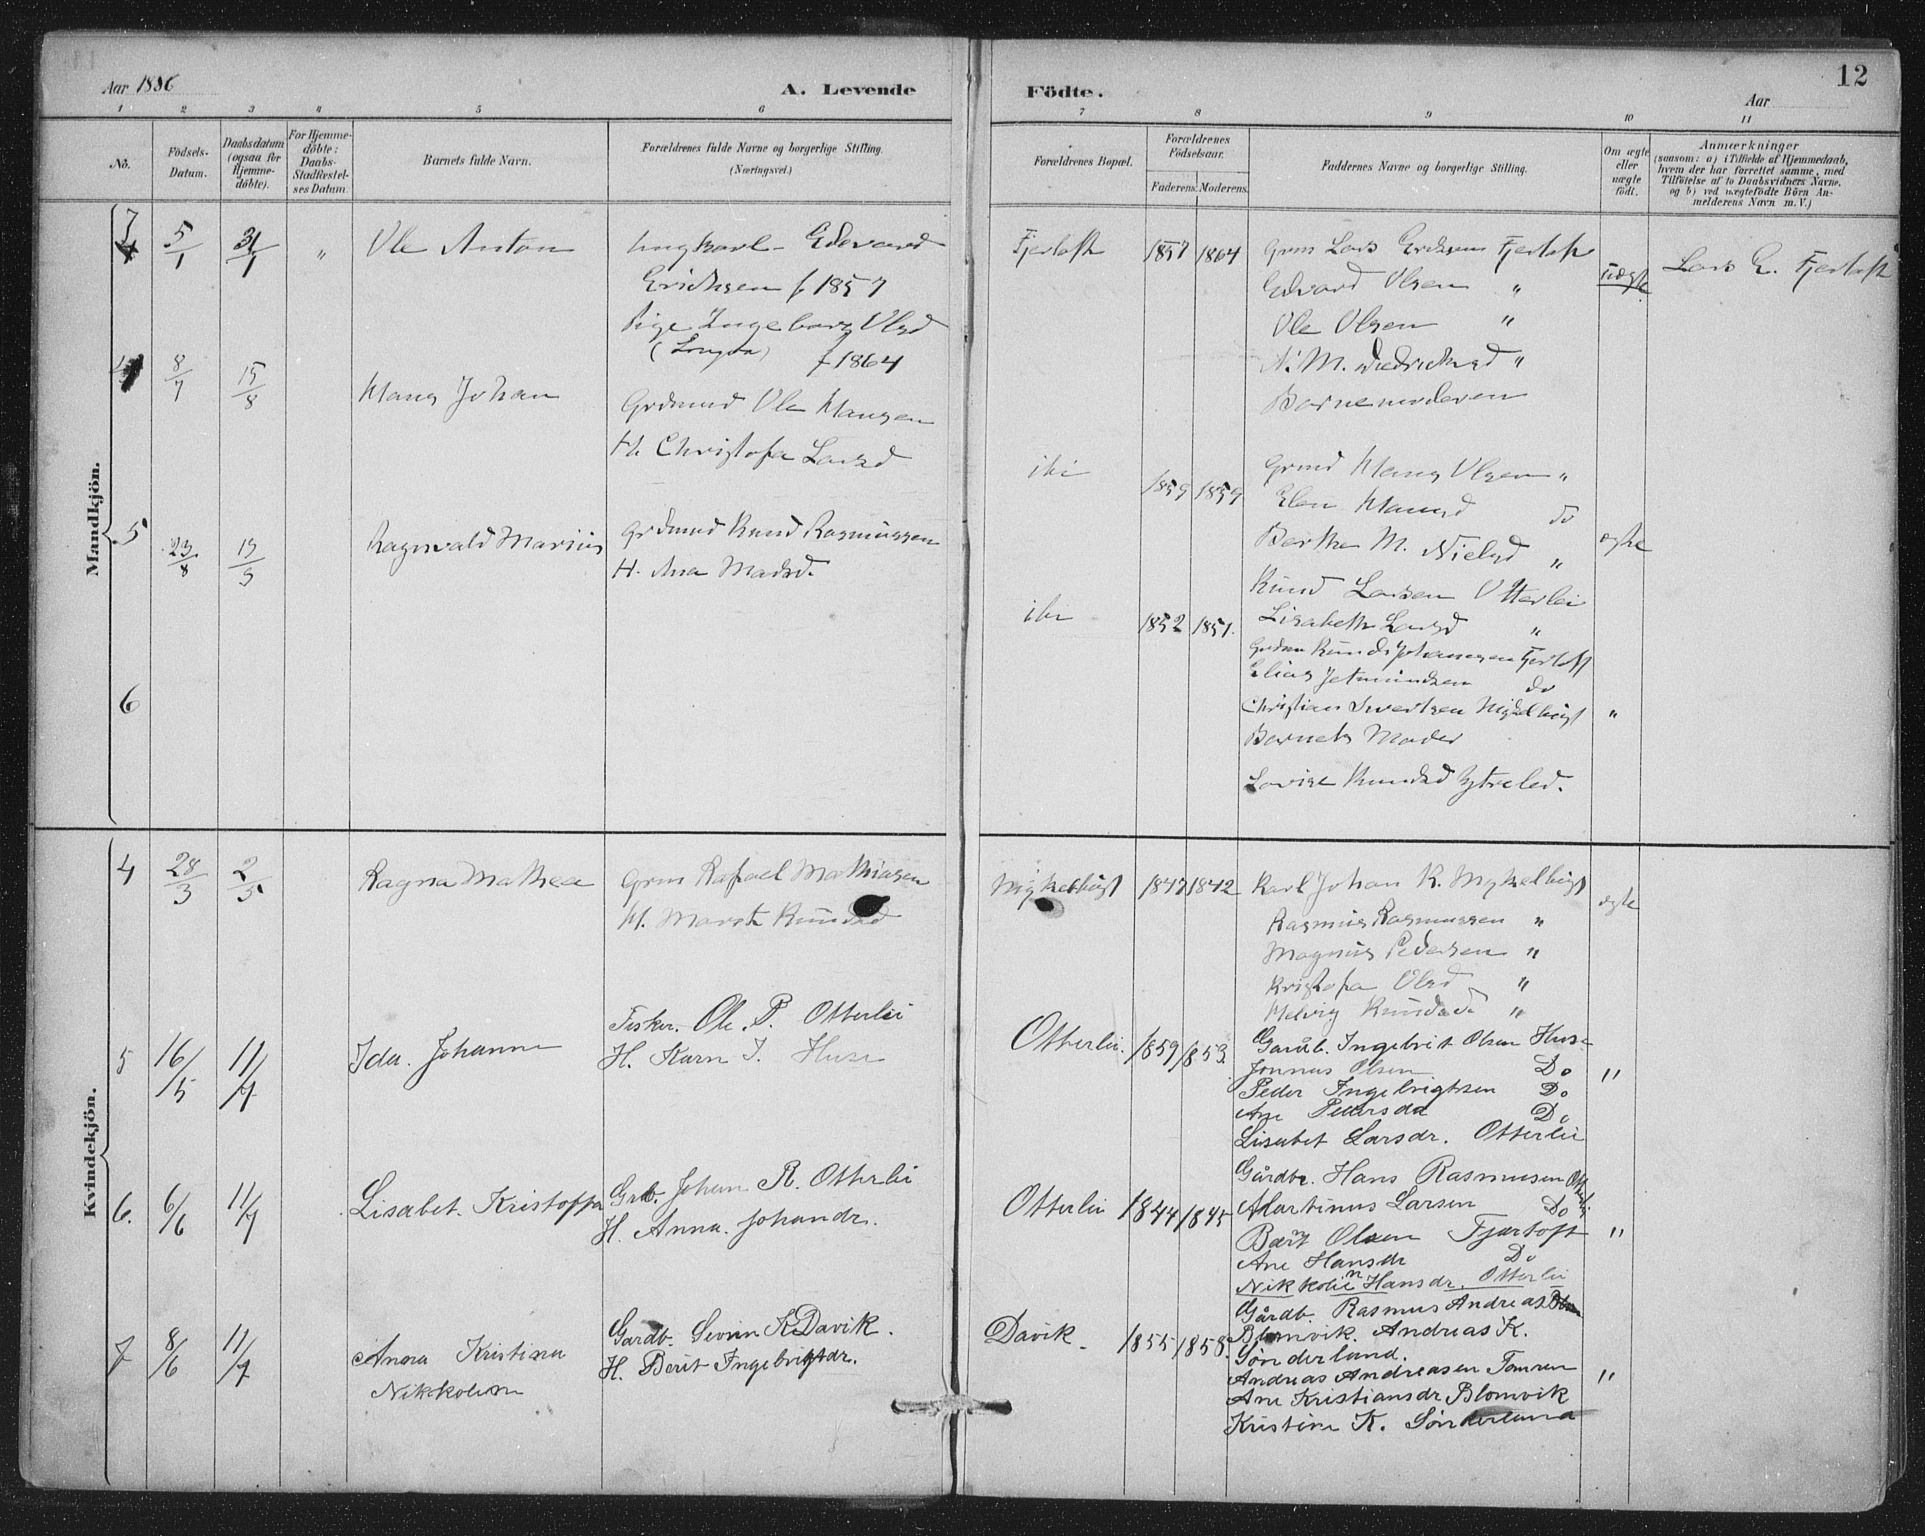 Aar 1886
A. Levende
Födte.
Aar
12
1 2 3 4 5 6 7 8 9 10 11
No.
Födsels-
Datum.
Daabsdatum
(ogsaa for
Hjemme-
döbte).
For Hjemme-
döbte:
Daabs-
Stadfæstel-
ses Datum.
Barnets fulde Navn.
Forældrenes fulde Navne og borgerlige Stilling.
(Næringsvei.)
Forældrenes Bopæl.
Forældrenes
Födselsaar.
Faderens. Moderens.
Faddernes Navne og borgerlige Stilling.
Om ægte
eller
uægte
födt.
Anmærkninger
(saasom: a) i Tilfælde af Hjemmedaab,
hvem der har forrettet samme, med
Tilföielse af to Daabsvidners Navne,
og b) ved uægtefödte Börn An-
melderens Navn m. V.)
Mandkjön.
5/1 31/1 " Ole Anton
Ungkarl Edevard
Erichsen f 1857
Pige Ingeborg Olsd
(Longva) f 1864
Fjertoft 1857 1864
Grm Lars Eriksen Fjertoft
Edvard Olsen "
Ole Olsen "
N. M. Diedriksd "
Barnemoderen
uægte
Lars E. Fjertoft
8/7 15/8 Hans Johan
Grdmand Ole Hansen
H. Christofa Larsd
ibi 1859 1859
Grmd Hans Olsen "
Elen Hansd do
Berthe M. Nielsd "
Knud Larsen Otterlei
Lisabeth Larsd "
ægte
5 23/8 19/9 Ragnvald Marius
Grdmand Knud Rasmussen
H. Ana Madsd.
ibi 1852 1851.
Knud Johannsen Fjertoft
Elias Jetmundsen do
Christian Sivertsen Myklebust "
Barnets Moder
Lovise Knudsd Ytreled.
6
Kvindekjön.
4 28/3 2/5 Ragna Mathea
Grm Rafael Mathiasen
H. Marte Knudsd
Myklebust 1847 1842
Karl Johan K. Myklebust
Rasmus Rasmussen "
Magnus Pedersen "
Kristofa Olsd "
Helvig Knudsd "
ægte
5 16/5 11/7 Ida Johanne
Fisker. Ole. P. Otterlei
H. Karn I. Huse
Otterlei. 1859 1853.
Gaúb. Ingebrit Olsen Huse
Jonnas Olsen Do "
Peder Ingebrigtsen Do
Ane Pedersdr Do
Lisabet Larsdr. Otterlei
6. 6/6 11/7 Lisabet. Kristoffa
Grb. Johan R. Otterlei
H. Anna. Johandr.
Otterlei 1844 1845
Gårdbr. Hans Rasmusen Otterlei
Martinus Larsen Do
Bært Olsen Fjærtoft "
Ane Hansdr Do
Nikkolien Hansdr. Otterlei
7 8/6 11/7 Anna Kristina
Nikkolina
Gardb. Sevrin K. Davik.
H. Berit Ingebrigtdr.
Davik. 1855 1858.
Gårdb. Rasmus Andreas
Blomvik. Andreas K.
Sønderland.
Andreas Andreasen Tomren "
Ane Kristiansdr Blomvik
Kristine K. Sønderland